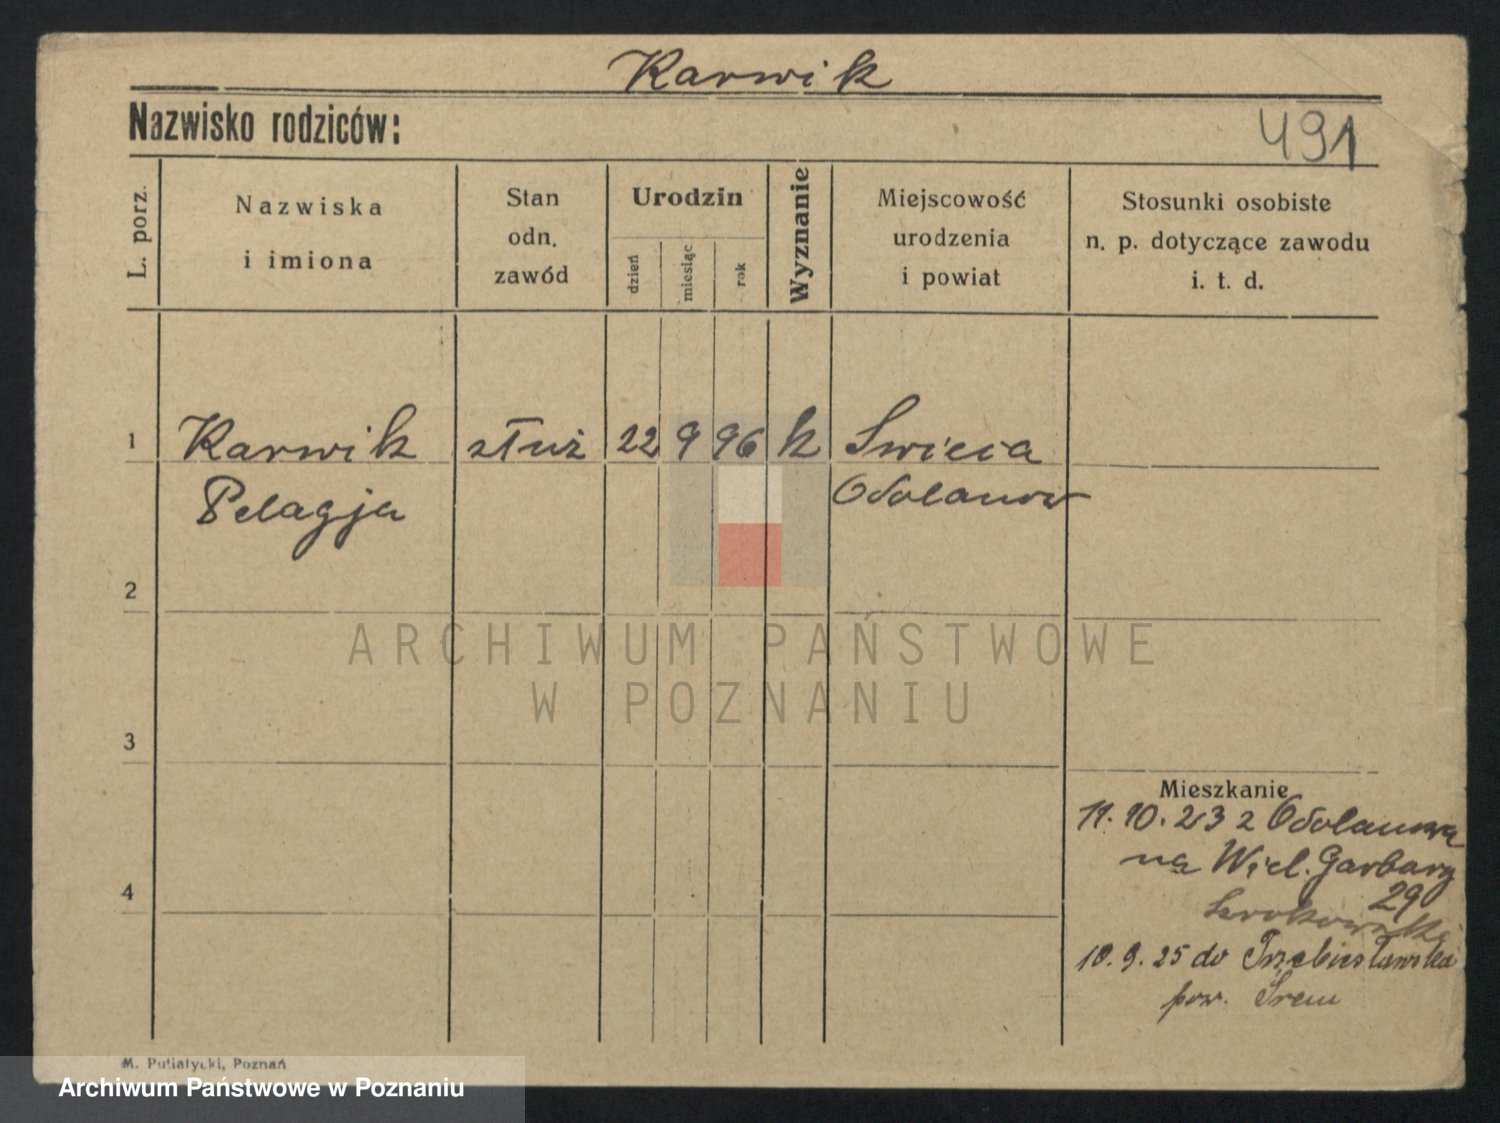 Karwik
Nazwisko rodziców:
491
L. porz.
Nazwiska
i imiona
Stan
odn.
zawód
Urodzin
dzień
miesiąc
rok
Wyznanie
Miejscowość
urodzenia
i powiat
Stosunki osobiste
n. p. dotyczące zawodu
i. t. d.
1 Karwik służ 22 9 96 k Swieca
Pelagja Odolanow
2
ARCHIWUM PAŃSTWOWE
W POZNANIU
3
Mieszkanie
11.10.23 z Odolanowa
na Wiel. Garbary
29
4
10.9.25 do
pow. Śrem
M. Putiatycki, Poznań
Archiwum Państwowe w Poznaniu